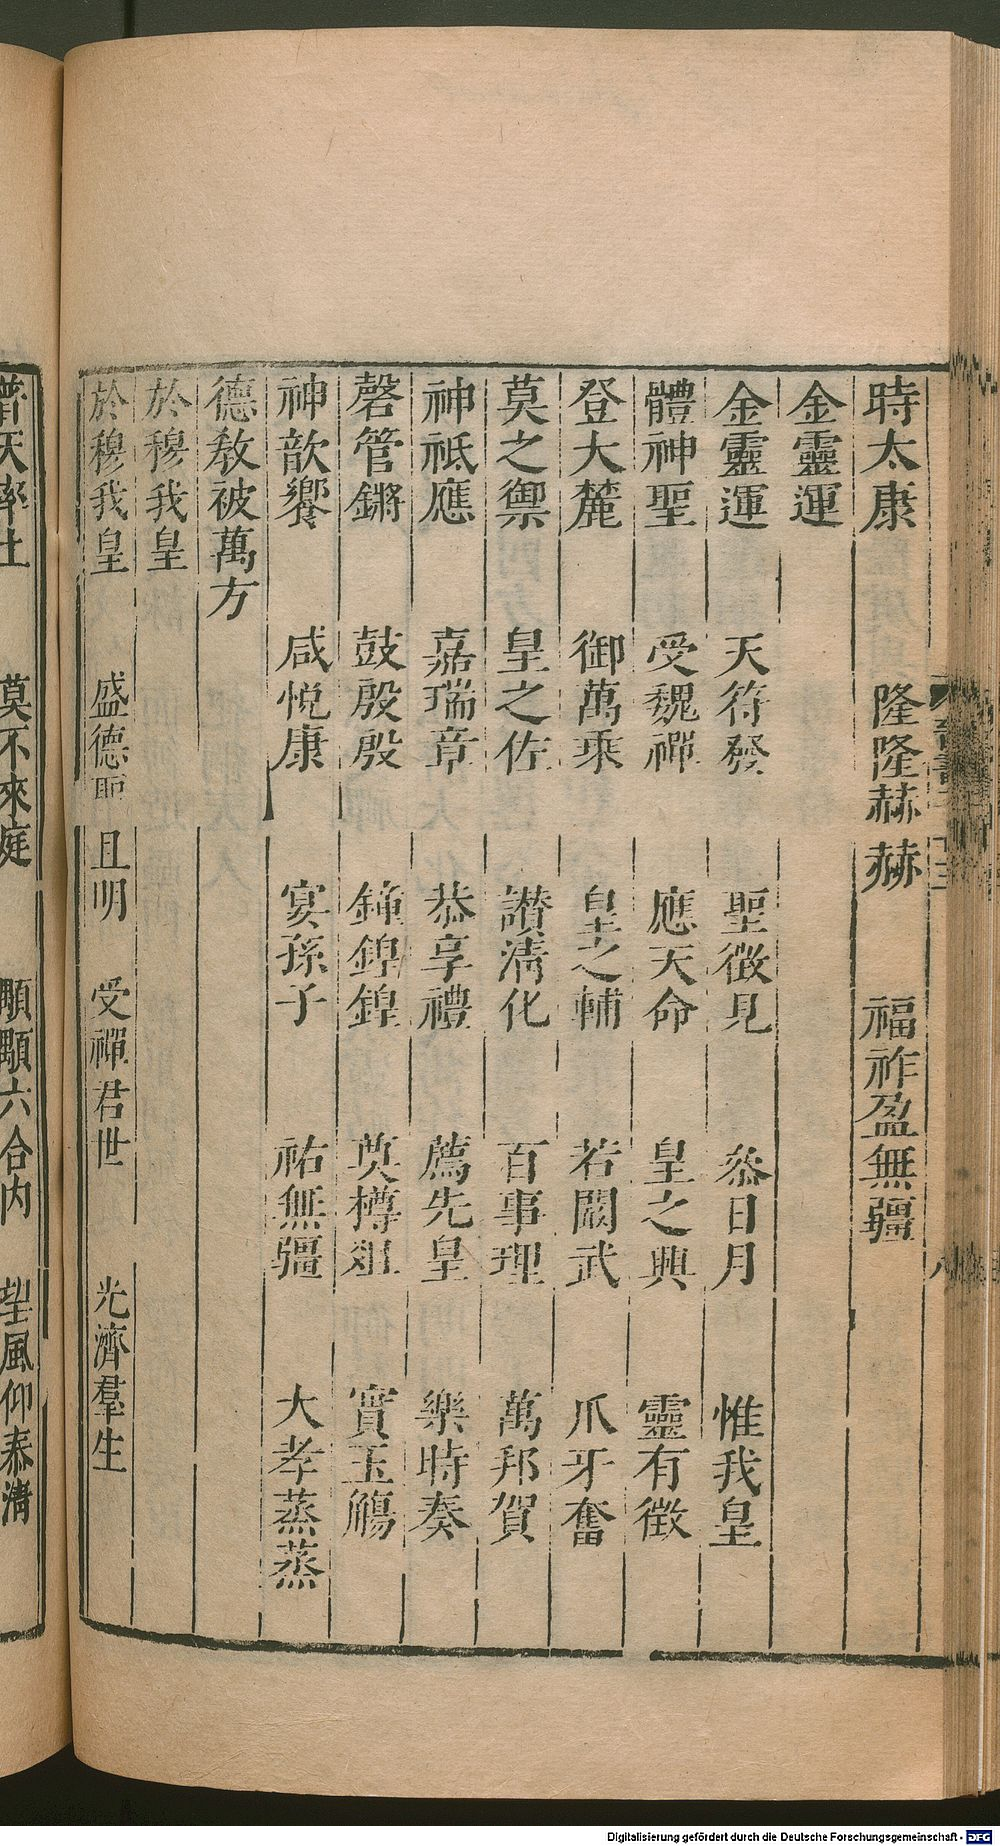 時太康 隆隆赫赫 福祚盈無疆
金靈運
金靈運 天符發 聖徵見 叅日月 惟我皇
體神聖 受魏禪 應天命 皇之興 靈有徵
登大麓 御萬乘 皇之輔 若闞武 爪牙奮
莫之禦 皇之佐 讃清化 百事理 萬邦賀
神祗應 嘉瑞章 恭享禮 薦先皇 樂時奏
磬管鏘 鼓殷殷 鐘鍠鍠 奠樽俎 實玉觴
神歆饗 咸悅康 宴孫子 祐無疆 大孝蒸蒸
德敎被萬方
於穆我皇
於穆我皇 盛德聖且明 受禪君世 光濟羣生
普天率土 莫不來庭 顒顒六合内 望風仰泰清
八
Digitalisierung gefördert durch die Deutsche Forschungsgemeinschaft - DFG